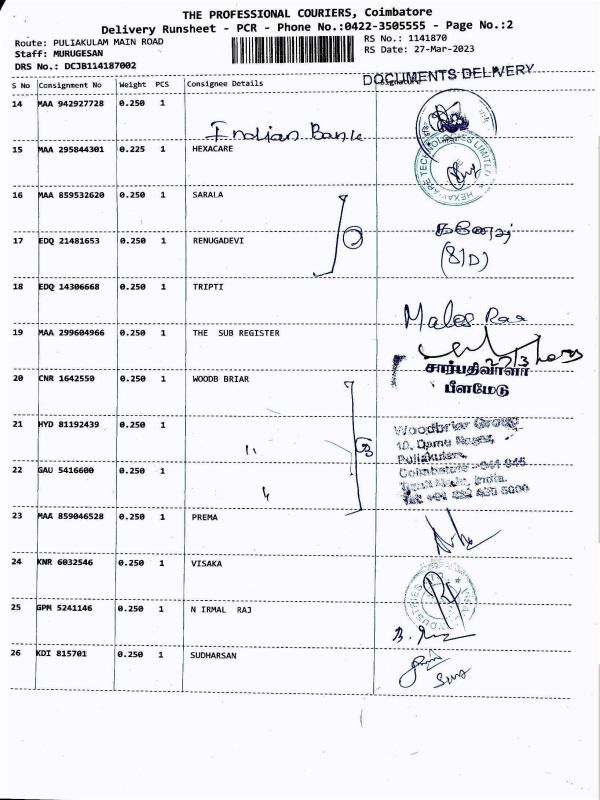 THE PROFESSIONAL COURIERS, Coimbatore
Delivery Runsheet - PCR - Phone No.:0422-3505555 - Page No.:2
Route: PULIAKULAM MAIN ROAD RS No.: 1141870
Staff: MURUGESAN RS Date: 27-Mar-2023
DRS No.: DCJB114187002
DOCUMENTS DELIVERY
S No Consignment No Weight PCS Consignee Details Signature
14 MAA 942927728 0.250 1
Indian Bank
15 MAA 295844301 0.225 1 HEXACARE
16 MAA 859532620 0.250 1 SARALA
17 EDQ 21481653 0.250 1 RENUGADEVI
(S/D)
18 EDQ 14306668 0.250 1 TRIPTI
19 MAA 299604966 0.250 1 THE SUB REGISTER
சார்பதிவாளர்
பீளமேடு
20 CNR 1642550 0.250 1 WOODB BRIAR
21 HYD 81192439 0.250 1 "
Woodbriar Group
Puliakulam,
22 GAU 5416600 0.250 1 "
23 MAA 859046528 0.250 1 PREMA
24 KNR 6032546 0.250 1 VISAKA
25 GPM 5241146 0.250 1 N IRMAL RAJ
26 KDI 815701 0.250 1 SUDHARSAN